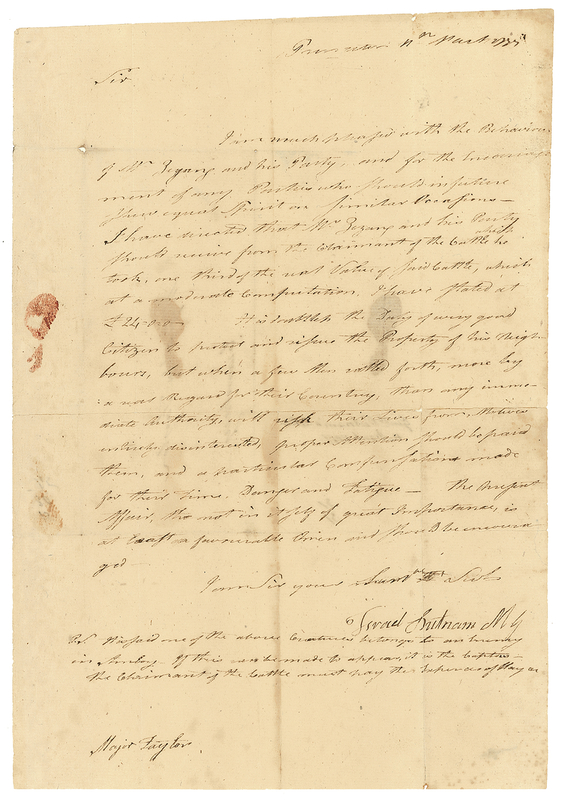 Princeton 11th March 1777
Sir
I am much pleased with the Behaviour
of Mr Zegany and his Party, and for the Incourage
ment of any Parties who should in future
shew equal Spirit on similar Occasions—
I have directed that Mr Zegany and his Party
should receive from the Claimant of the Cattle which he
took, one third of the real Value of said Cattle, which
at a moderate Computation, I have stated at
£24-0-0— It is doubtless the Duty of every good
Citizen to protect and rescue the Property of his Neigh-
bours, but when a few Men rallied forth, more by
a real Regard for their Country, than any imme-
diate Authority, will risk their Lives from Motives
entirely disinterested, proper Attention should be paid
them, and a particular Compensation made
for their Time, Danger and Fatigue— The present
Affair, tho not in itself of great Importance, is
at least a favourable Omen and should be incoura
ged—
I am Sir your Servt
Israel Putnam M G
PS. said one of the above Creatures belongs to an Enemy
in Amboy. If this can be made to appear, it is the Captors—
the Claimant of the Cattle must pay the Expences of Hay &c
Major Taylor